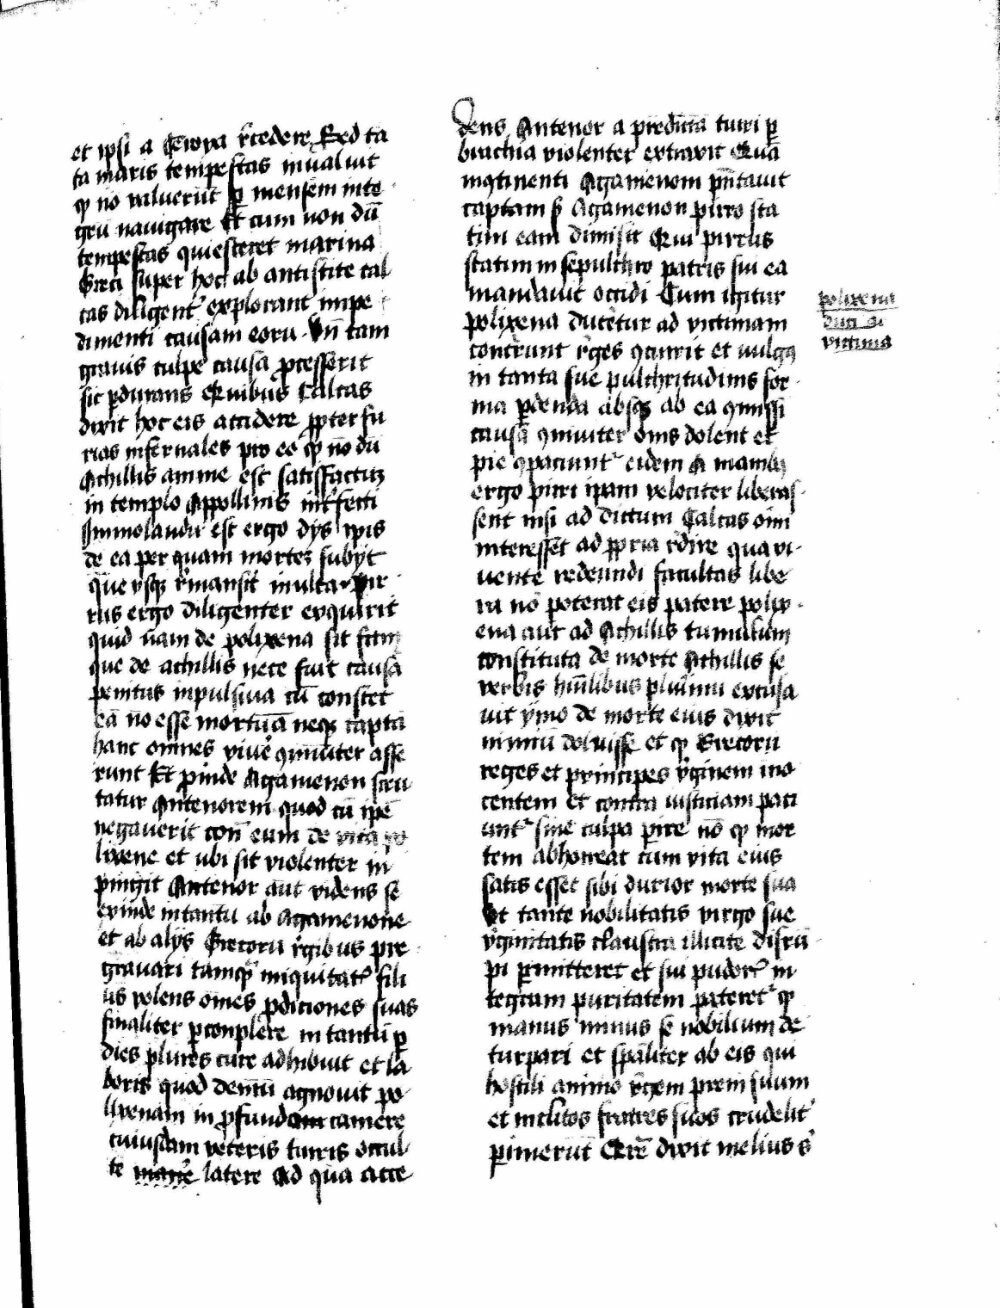 et ipsi a Troya r̄cedere Sed ta
ta maris tempestas inualuit
ꝙ nō valuerūt ꝑ mensem inte
grū nauigare Et cum non dū
tempestas quiesceret marina
Greci super hoc ab antistite cal
cas diligent᷑ explorant impe
dimenti causam eorū · Vn̄ tam
grauis culpe causa ꝓcesserit
sic ꝑdurans Quibus Calcas
dixit hoc eis accidere ꝓpter fu
rias infernales pro eo ꝙ nō dū
Achillis anime est satisfactuꝫ
in templo Appollinis int̄fecti
Immolandū est ergo dijs ipis
de ea per quam morteꝫ subijt
que vsqꝫ r̄mansit inulta Pir
rus ergo diligenter exquirit
quid nam de polixena sit
que de achillis nece fuit causa
penitus inpulsiua cū constet
eā nō esse mortuā neqꝫ captā
hanc om̄es viuē ꝯmūiter asse
runt Et ꝓinde Agamenon scru
tatur Antenorem quod cū ipē
negauerit con̄ eum de vita po
lixene et ubi sit violenter in
pingit Antenor aūt videns se
exinde intantū ab Agamenone
et ab alijs Grecorū r̄gibus pre
grauari tamqᷓ iniquitat᷑ fili
us volens om̄es ꝓdiciones suas
finaliter ꝑconplēre in tantū ꝑ
dies plures cure adhibuit et la
boris quod demū agnouit po
lixenam in ꝓfundam camere
cuiusdam veteris turis occul
te mane᷑ latere Ad quā acce
dens Antenor a predicta turi ꝑ
brachia violenter extraxit Quā
inꝯtinenti Agamenoni p̄ntauit
captam sꝫ Agamenon pirro sta
tim eam dimisit Qui pirrus
statim in sepulchro patris sui eā
mandauit occidi Cum igitur
polixena ducēt᷑ur ad victimam
polixena
duci ad
victima
concurrunt r̄ges ꝯcurrit et uulgꝯ
in tanta sue pulchritudinis for
ma ꝑdenda absqꝫ ab ea ꝯmissi
causa ꝯmuiter om̄s dolent et
pie ꝯpaciunt᷑ eidem A manibꝫ
ergo pirri ipam velociter liberas
sent nisi ad dictum Calcas om̄i
interesset ad ꝓpria r̄dire qua vi
uente redeundi facultas libe
ra nō poterat eis patere polix
ena aūt ad Achillis tumulum
constituta de morte Achillis se
verbis hūilibus plurimū excusa
uit ymo de morte eius dixit
nimiū doluisse et ꝙ Grecorū
reges et principes v̄ginem ino
centem et contra iusticiam paci
unt᷑ sine culpa ꝑire nō ꝙ mor
tem abhorreat cum vita eius
satis esset sibi durior morte sua
Vt tante nobilitatis virgo sue
v̄ginitatis claustra illicite disrū
pi ꝑmitteret et sui pudor᷑ in
tegram puritatem pateret᷑ ꝙ
manus minus se nobilium de
turpari et spāliter ab eis qui
hostili animo r̄gem premi suum
et inclitos fratres suos crudelit᷑
ꝑimerūt Qr̄e dixit melius s᷑